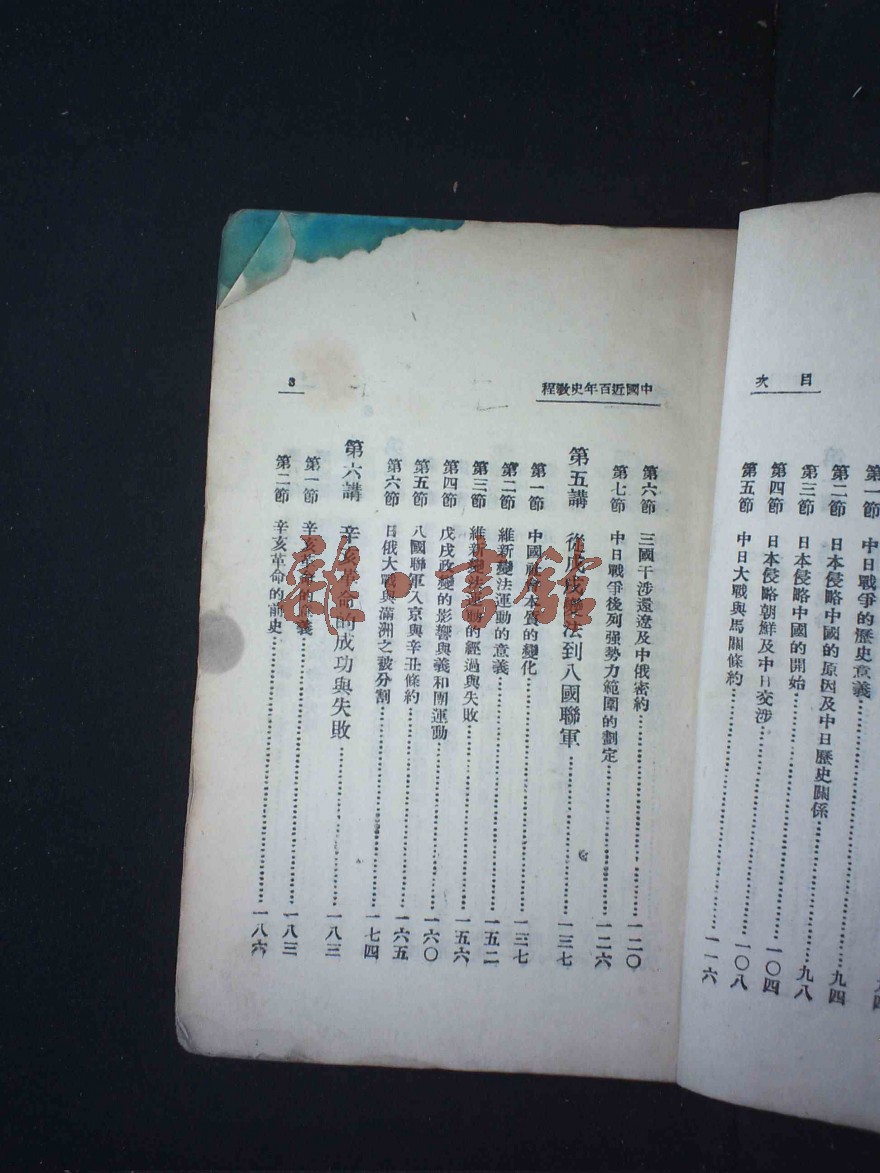 目次
第一節 中日戰爭的歷史意義
第二節 日本侵略中國的原因及中日歷史關係 九四
第三節 日本侵略中國的開始 九八
第四節 日本侵略朝鮮及中日交涉 一〇四
第五節 中日大戰與馬關條約 一〇八
一一六
中國近百年史教程
3
第六節 三國干涉還遼及中俄密約 一二〇
第七節 中日戰爭後列强勢力範圍的劃定 一二六
第五講 從戊戌變法到八國聯軍 一三七
第一節 中國社會本質的變化 一三七
第二節 維新變法運動的意義 一五二
第三節 維新變法運動的經過與失敗 一五六
第四節 戊戌政變的影響與義和團運動 一六〇
第五節 八國聯軍入京與辛丑條約 一六五
第六節 日俄大戰與滿洲之被分割 一七四
第六講 辛亥革命的成功與失敗 一八三
第一節 辛亥革命的意義 一八三
第二節 辛亥革命的前史 一八六
雜·書館